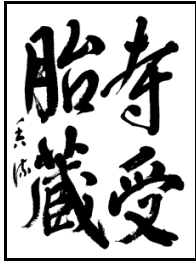 寿受
胎蔵